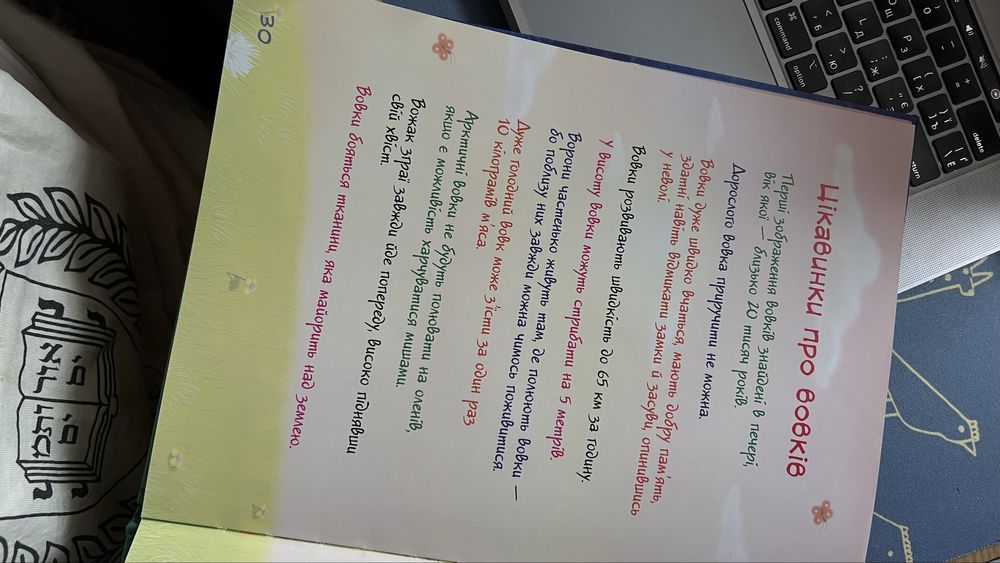 Цікавинки про вовків
Перші зображення вовків знайдені в печері,
вік якої — близько 20 тисяч років.
Дорослого вовка приручити не можна.
Вовки дуже швидко вчаться, мають добру пам'ять,
здатні навіть відмикати замки й засуви, опинившись
у неволі.
Вовки розвивають швидкість до 65 км за годину.
У висоту вовки можуть стрибати на 5 метрів.
Ворони частенько живуть там, де полюють вовки —
бо поблизу них завжди можна чимось поживитися.
Дуже голодний вовк може з'їсти за один раз
10 кілограмів м'яса.
Арктичні вовки не будуть полювати на оленів,
якщо є можливість харчуватися мишами.
Вожак зграї завжди йде попереду, високо піднявши
свій хвіст.
Вовки бояться тканини, яка майорить над землею.
30
command
option
delete